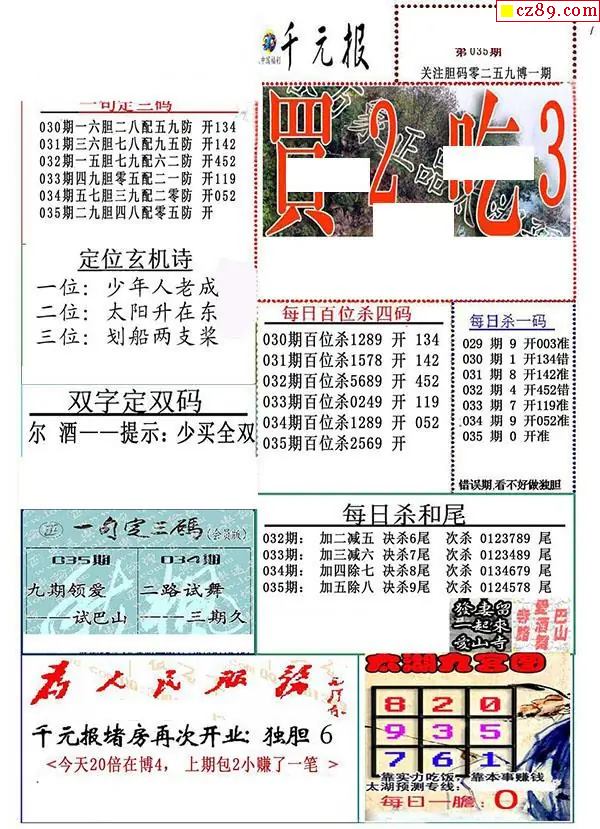 cz89.com
千元报
第035期
关注胆码零二五九博一期
一句定三码
030期一六胆二八配五九防 开134
031期三六胆七八九配五五防 开142
032期一五胆七九配六二防 开452
033期四九胆零五配二一防 开119
034期五七胆三九配二零防 开052
035期二九胆四八配零五防 开
買2吃3
定位玄机诗
一位: 少年人老成
二位: 太阳升在东
三位: 划船两支桨
每日百位杀四码
030期百位杀1289 开 134
031期百位杀1578 开 142
032期百位杀5689 开 452
033期百位杀0249 开 119
034期百位杀1289 开 052
035期百位杀2569 开
每日杀一码
029 期 9 开003准
030 期 1 开134错
031 期 8 开142准
032 期 4 开452错
033 期 7 开119准
034 期 9 开052准
035 期 0 开准
错误期,看不好做独胆
双字定双码
尔 酒——提示: 少买全双
每日杀和尾
032期: 加二减五 决杀6尾 次杀 0123789 尾
033期: 加三减六 决杀7尾 次杀 0123489 尾
034期: 加四除七 决杀8尾 次杀 0134679 尾
035期: 加五除八 决杀9尾 次杀 0124578 尾
一句定三碼(会员版)
035期
九期领爱
——试巴山
034期
二路试舞
——三期久
一起來
巴山
为人民服务
千元报堵房再次开业: 独胆 6
<今天20倍在博4, 上期包2小赚了一笔 >
太湖九宫图
8 2 0
9 3 5
7 6 1
靠实力吃饭, 靠本事赚钱
太湖预测专线:
每日一胆: 0